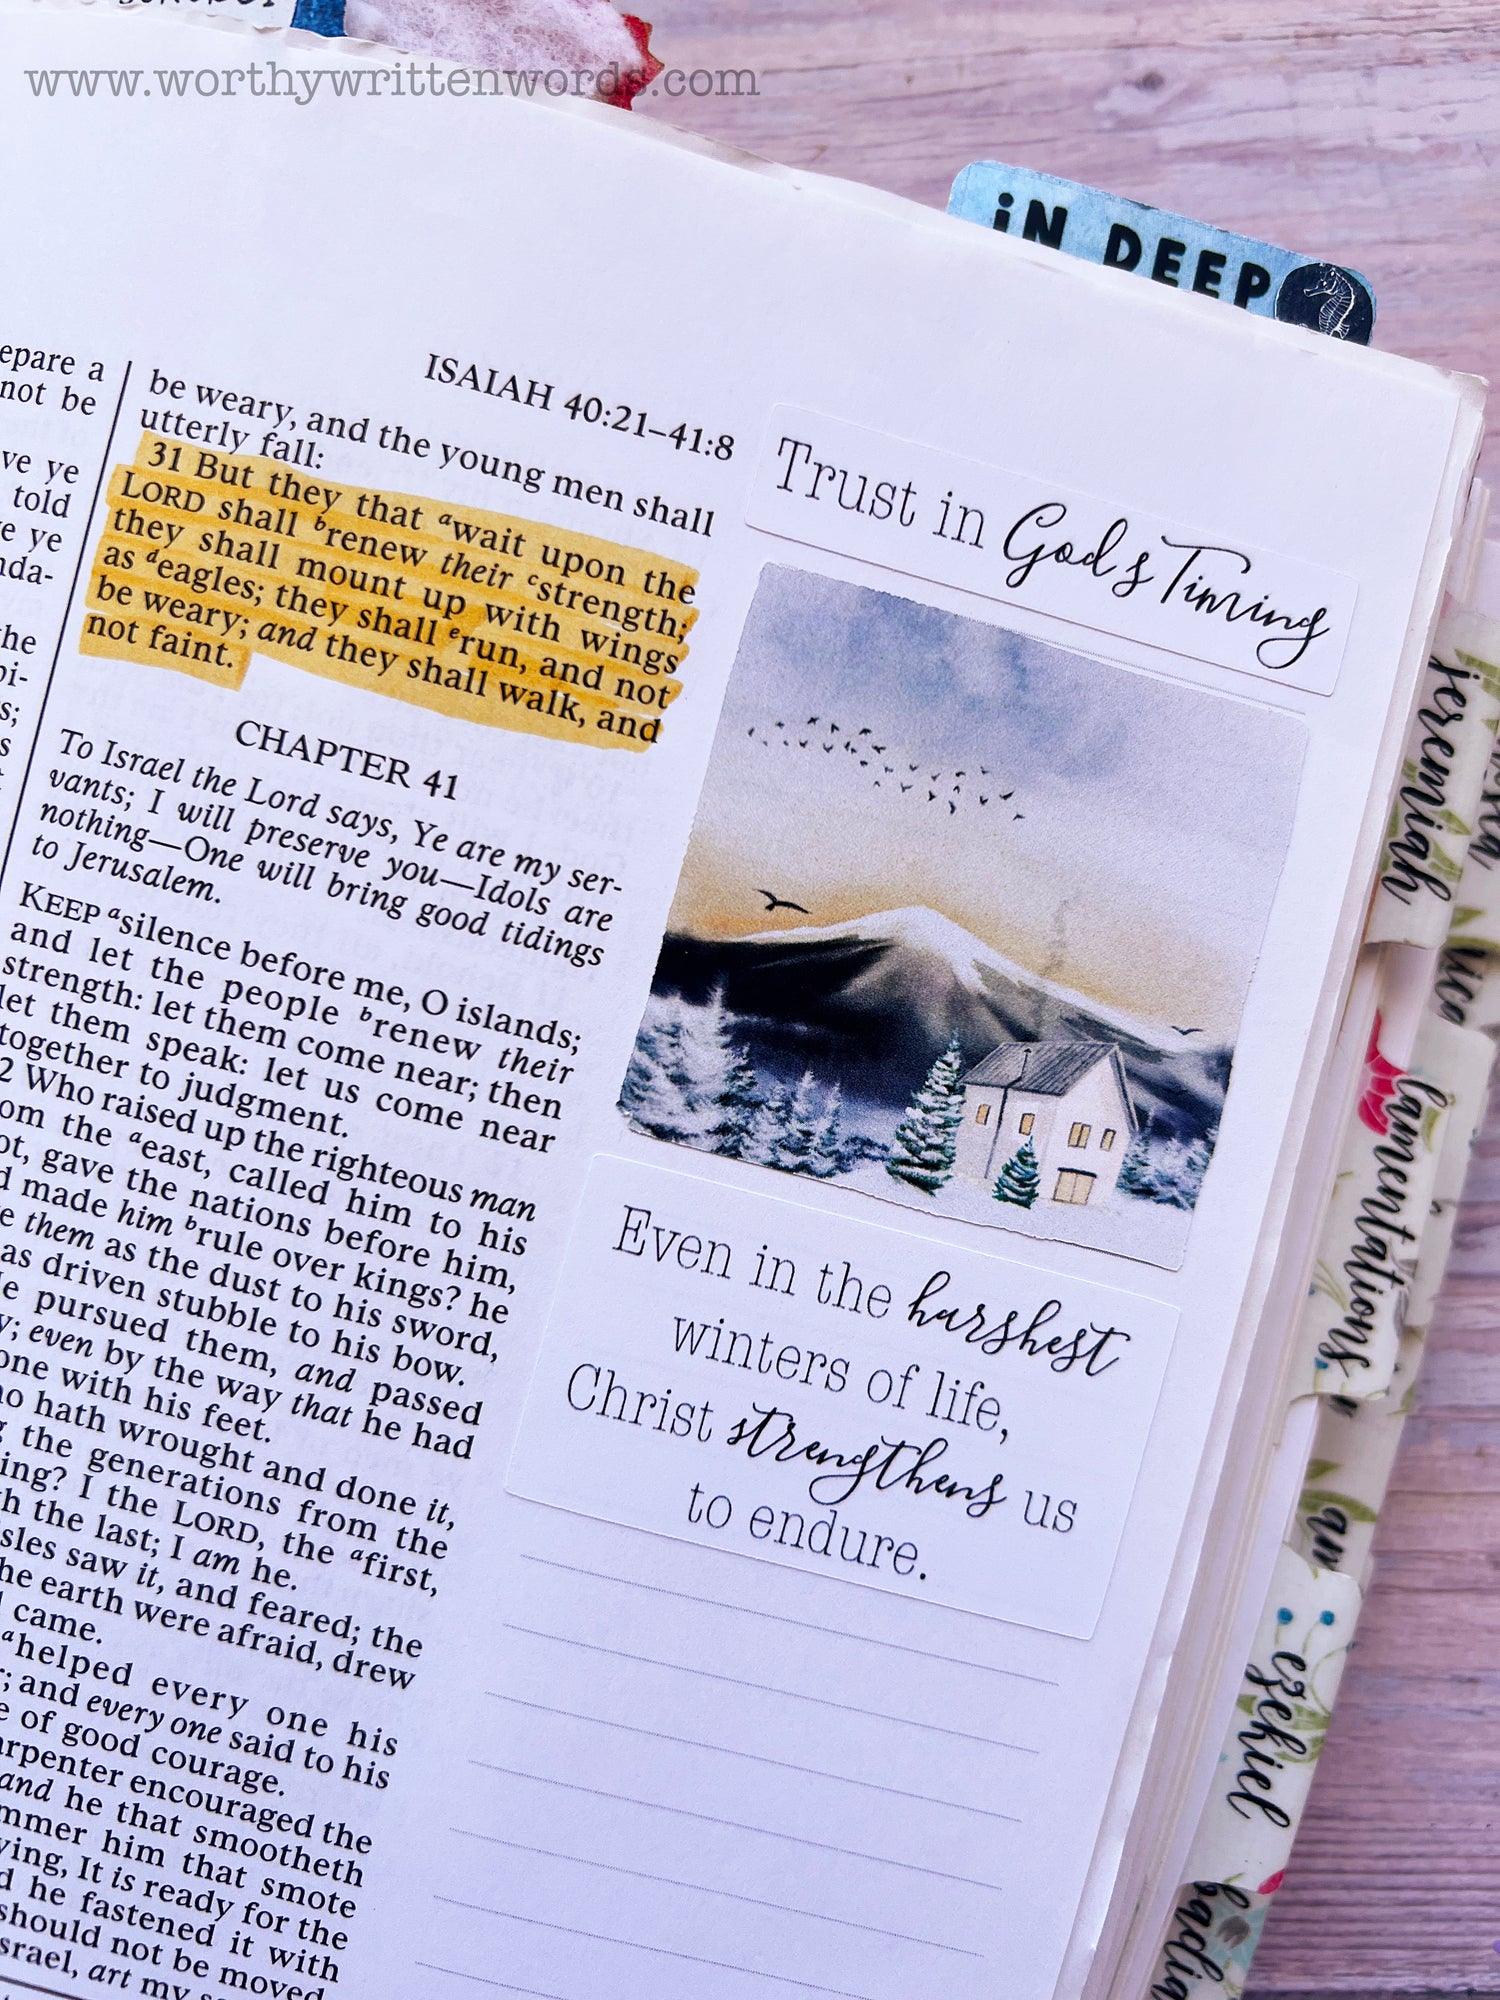 www.worthywrittenwords.com
iN DEEP
ISAIAH 40:21–41:8
epare a
not be
ve ye
told
e ye
nda-
the
s;
be weary, and the young men shall
utterly fall:
31 But they that ᵃwait upon the
LORD shall ᵇrenew their ᶜstrength;
they shall mount up with wings
as ᵈeagles; they shall ᵉrun, and not
be weary; and they shall walk, and
not faint.
CHAPTER 41
To Israel the Lord says, Ye are my ser-
vants; I will preserve you—Idols are
nothing—One will bring good tidings
to Jerusalem.
KEEP ᵃsilence before me, O islands;
and let the people ᵇrenew their
strength: let them come near; then
let them speak: let us come near
together to judgment.
2 Who raised up the righteous man
om the ᵃeast, called him to his
ot, gave the nations before him,
d made him ᵇrule over kings? he
e them as the dust to his sword,
as driven stubble to his bow.
e pursued them, and passed
y; even by the way that he had
one with his feet.
ho hath wrought and done it,
g the generations from the
ing? I the LORD, the ᵃfirst,
th the last; I am he.
sles saw it, and feared; the
he earth were afraid, drew
came.
ᵃhelped every one his
r; and every one said to his
e of good courage.
arpenter encouraged the
and he that smootheth
mmer him that smote
ying, It is ready for the
d he fastened it with
should not be moved.
srael, art my
Trust in God's Timing
Even in the harshest
winters of life,
Christ strengthens us
to endure.
jeremiah
lamentations
ezekiel